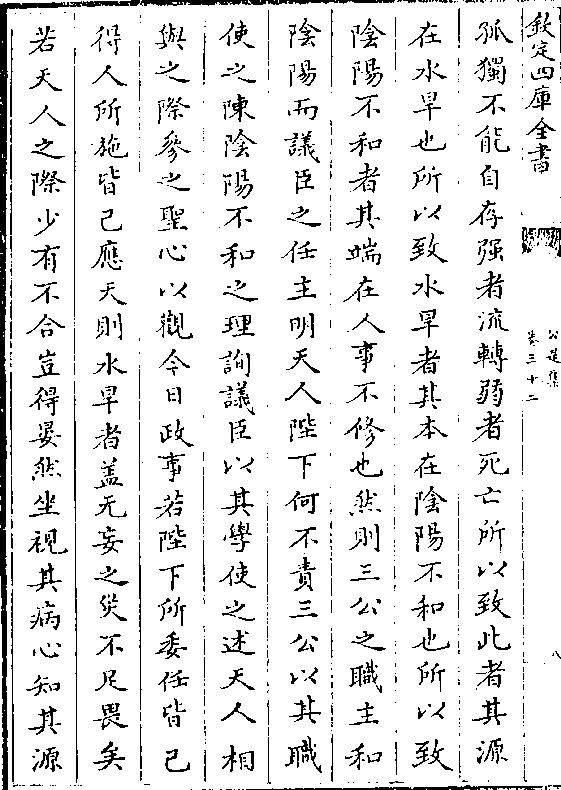 欽定四庫全書
公是集
卷三十二
八
孤獨不能自存强者流轉弱者死亡所以致此者其源
在水旱也所以致水旱者其本在陰陽不和也所以致
陰陽不和者其端在人事不修也然則三公之職主和
陰陽而議臣之任主明天人陛下何不責三公以其職
使之陳陰陽不和之理詢議臣以其學使之述天人相
與之際參之聖心以觀今日政事若陛下所委任皆已
得人所施皆已應天則水旱者盖无妄之災不足畏矣
若天人之際少有不合豈得晏然坐視其病心知其源